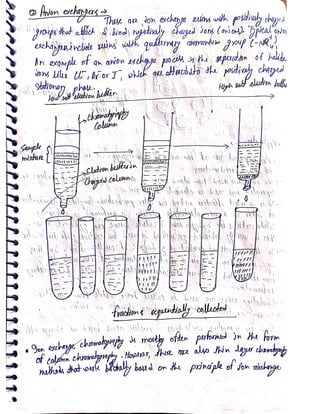 ② Anion exchangers →
These are ion exchange resins with positively charged
groups that attract & bind negatively charged ions (anions). Typical anion
exchangers include resins with quaternary ammonium group (-NR₃⁺)
An example of an anion exchange process is the separation of halide
ions like Cl⁻, Br⁻ or I⁻, which are attracted to the positively charged
stationary phase.
Low salt elution buffer
High salt elution buffer
Chromatography
Column
Sample
mixture
Elution buffer in
Charged column
fractions sequentially collected
• Ion exchange chromatography is mostly often performed in the form
of column chromatography. However, there are also thin layer chromatography
methods that work basically based on the principle of ion exchange